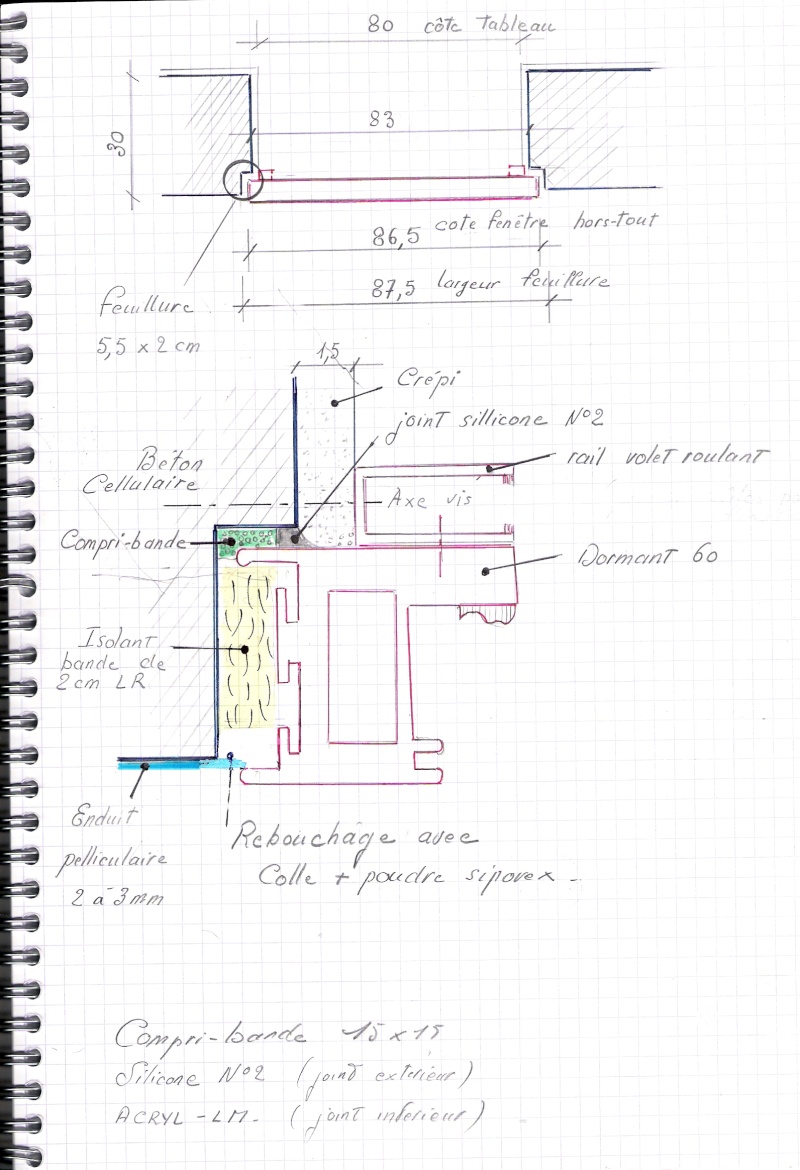 80 côte Tableau
30
83
86,5 cote fenêtre hors-tout
87,5 largeur feuillure
feuillure
5,5 x 2 cm
1,5
Crépi
joint sillicone N°2
rail volet roulant
Béton
Cellulaire
Axe vis
Compri-bande
Dormant 60
Isolant
bande de
2 cm LR
Enduit
pelliculaire
2 à 3mm
Rebouchage avec
Colle + poudre siporex -
Compri-bande 15 x 15
Silicone N°2 (joint extérieur)
ACRYL-LM- (joint interieur)